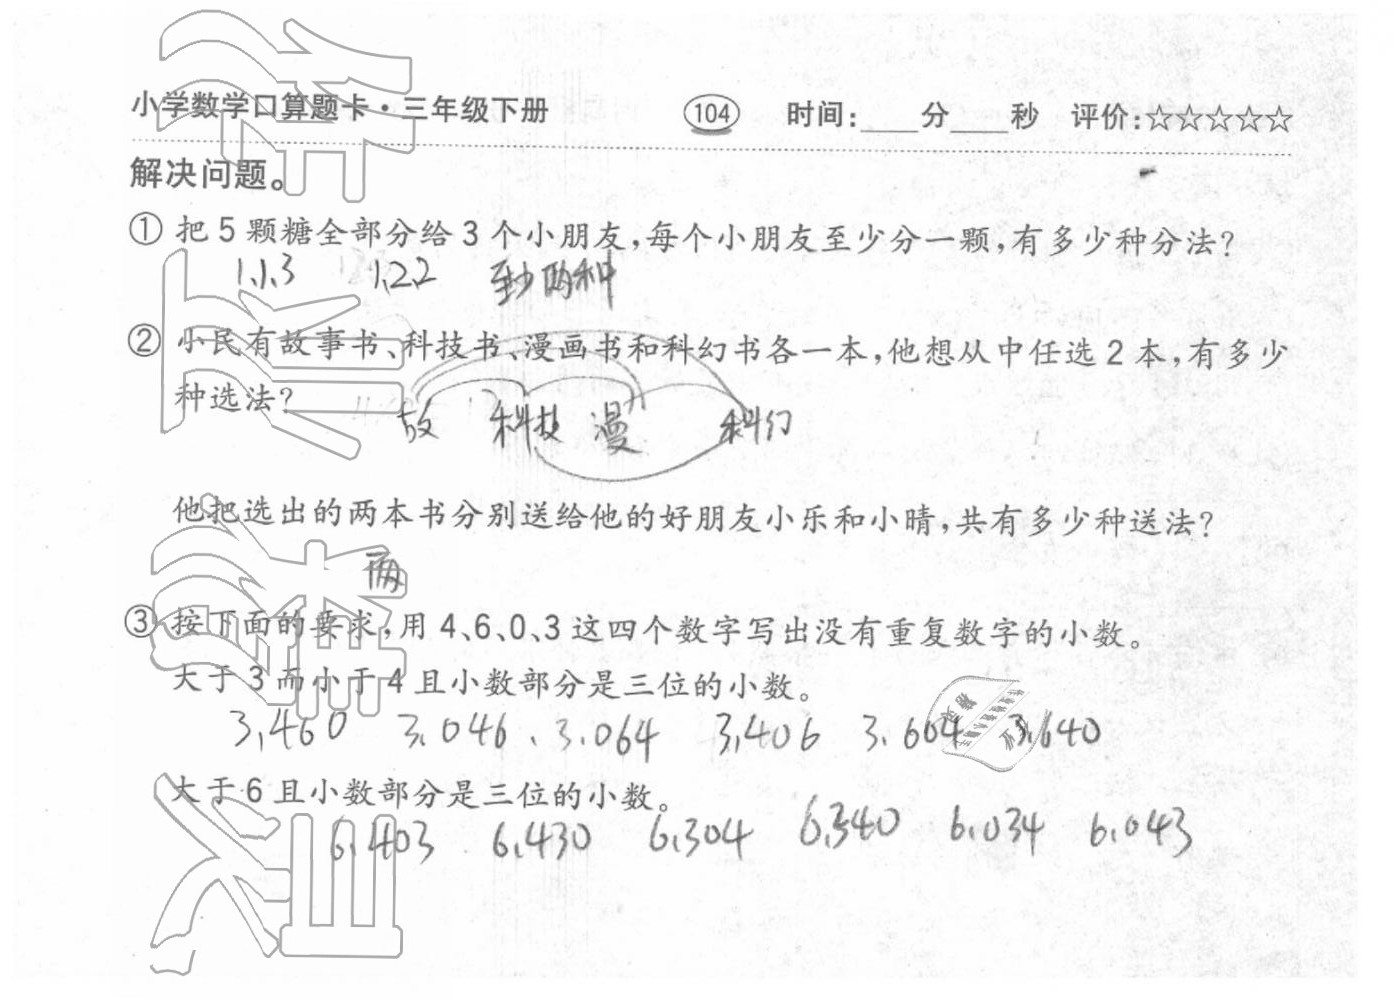 小学数学口算题卡·三年级下册 104 时间:____分____秒 评价:☆☆☆☆☆
解决问题。
① 把5颗糖全部分给3个小朋友,每个小朋友至少分一颗,有多少种分法?
1,1,3 1,2,2 两种
② 小民有故事书、科技书、漫画书和科幻书各一本,他想从中任选2本,有多少
种选法?
故 科技 漫 科幻
他把选出的两本书分别送给他的好朋友小乐和小晴,共有多少种送法?
两
③ 按下面的要求,用4、6、0、3这四个数字写出没有重复数字的小数。
大于3而小于4且小数部分是三位的小数。
3.460 3.046 . 3.064 3.406 3.604 3.640
大于6且小数部分是三位的小数。
6.403 6.430 6.304 6.340 6.034 6.043